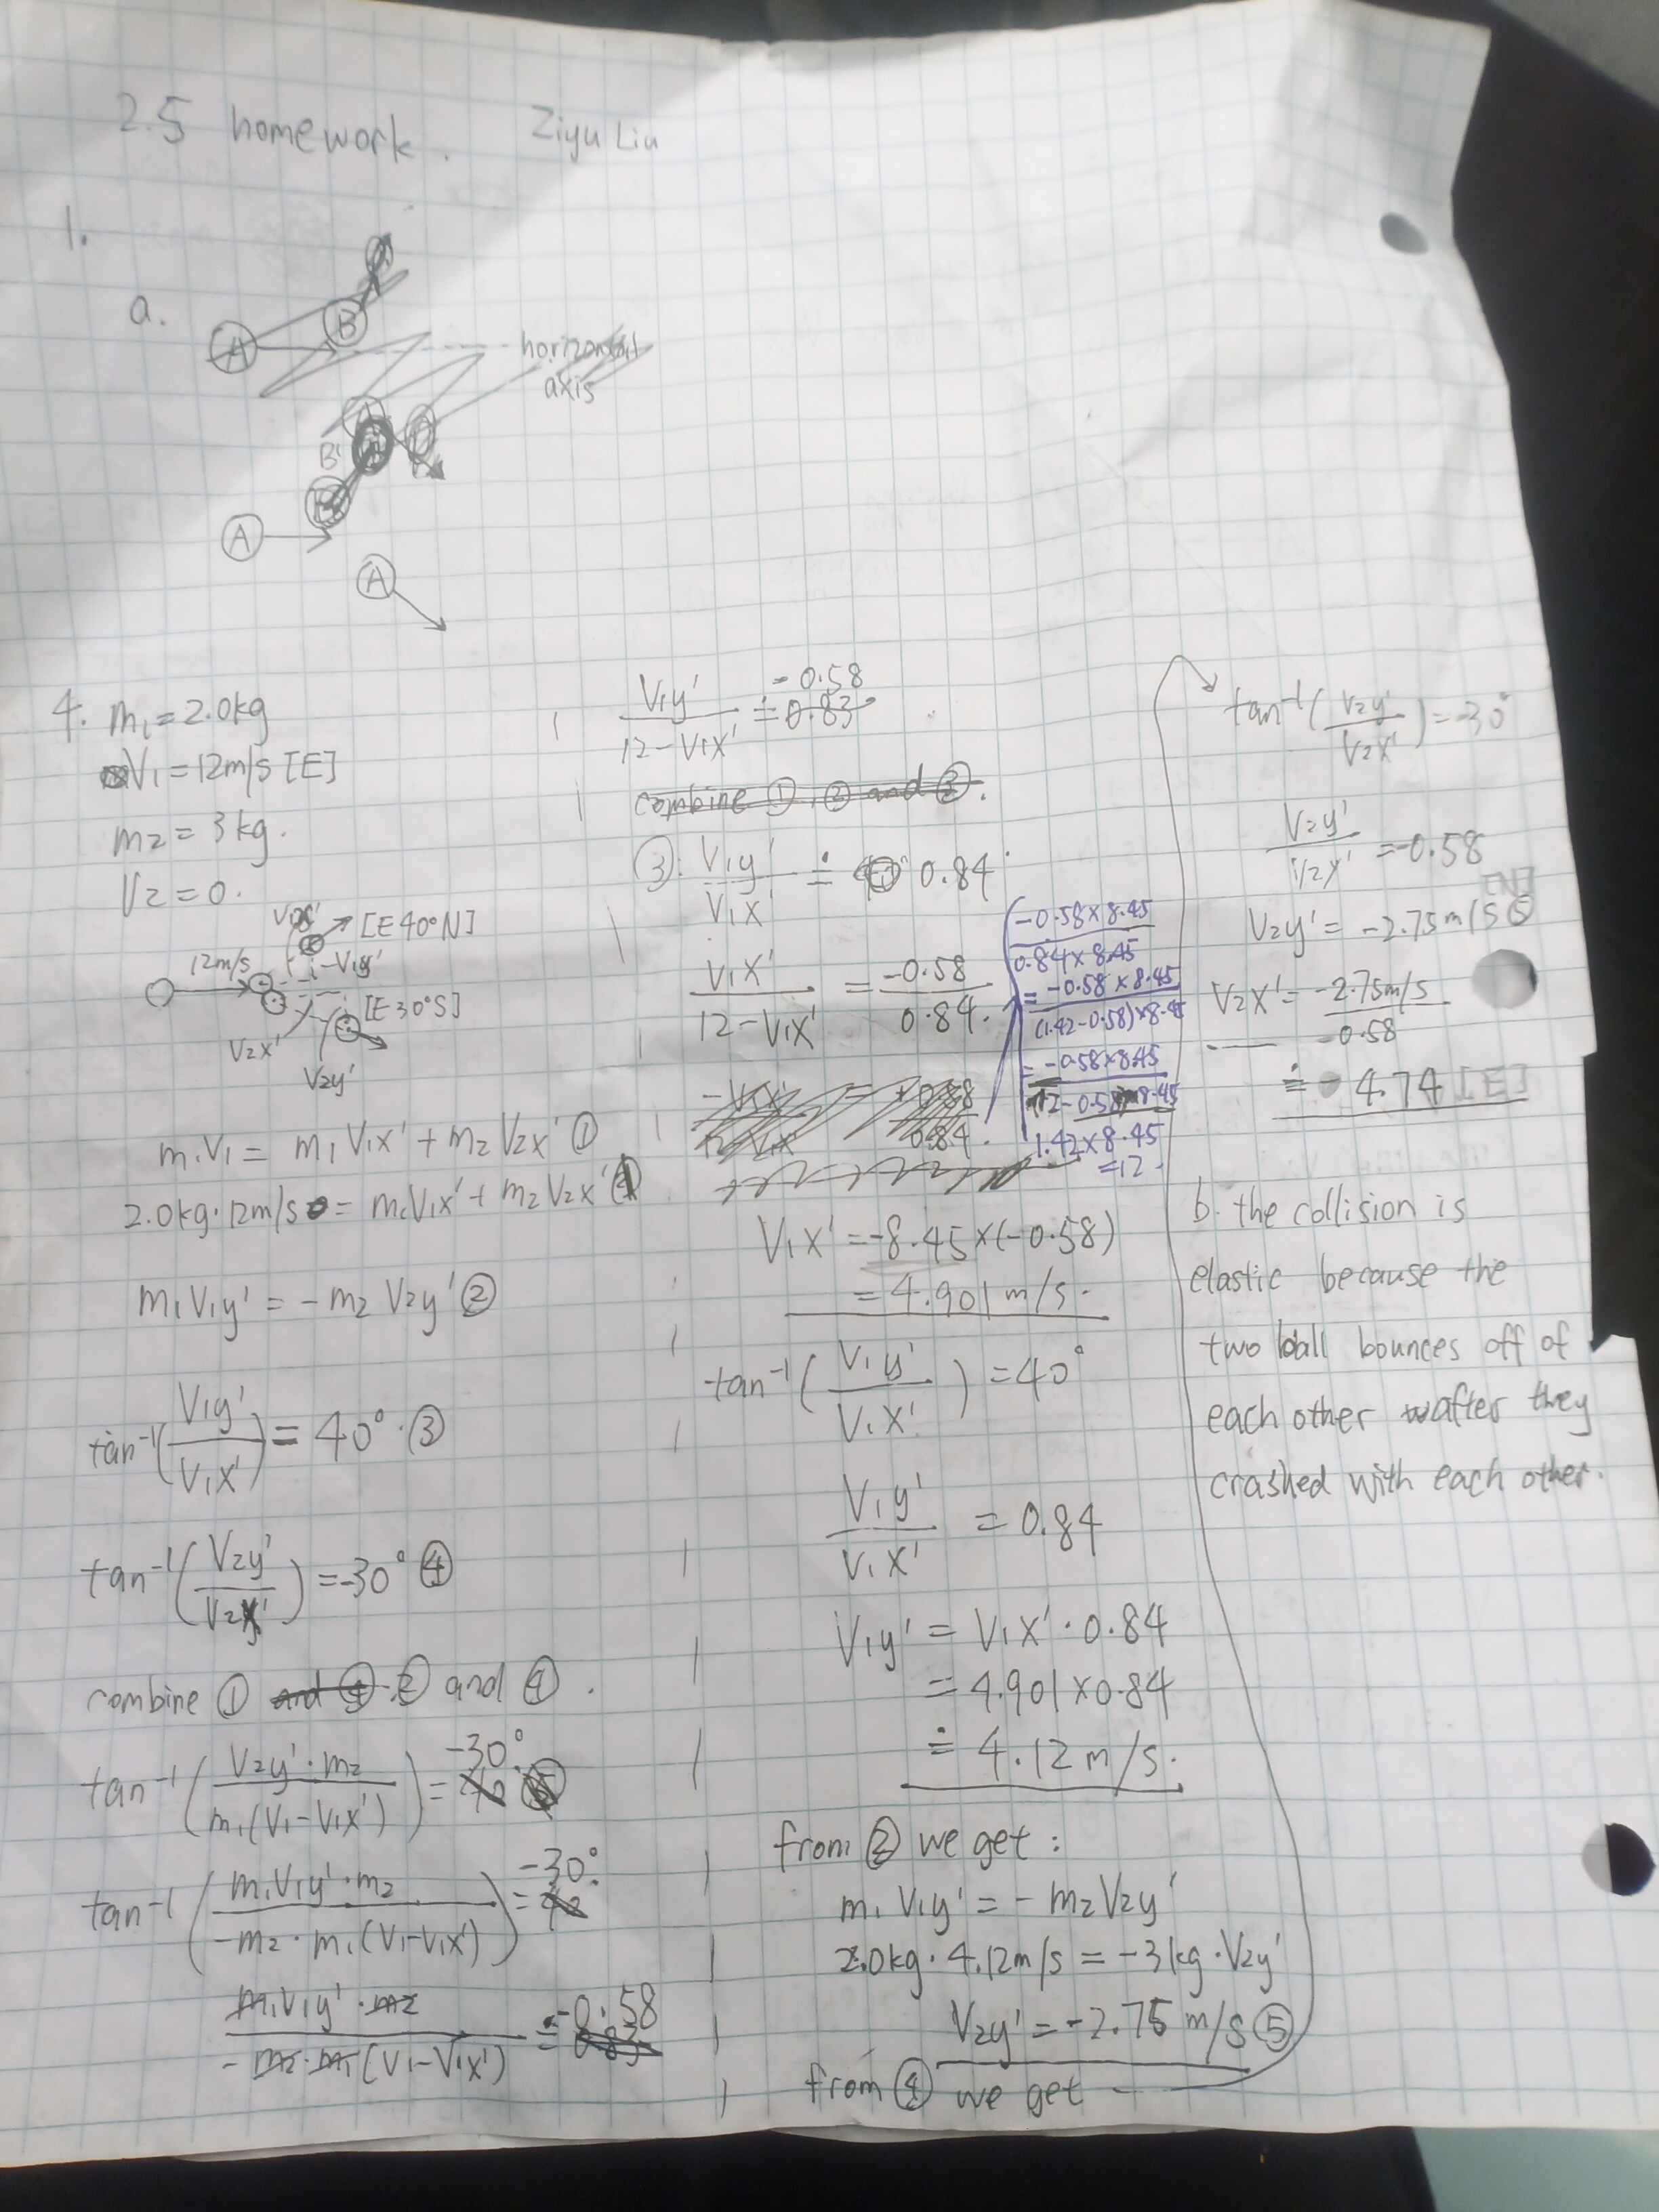 2.5 homework. Ziyu Liu
1.
a.
A B
horizontal
axis
B'
A
A
4. m₁ = 2.0kg
V₁ = 12m/s [E]
m₂ = 3kg.
V₂ = 0.
[E40°N]
12m/s
V₁y'
[E30°S]
V₂x'
V₂y'
m₁V₁ = m₁V₁x' + m₂V₂x' ①
2.0kg·12m/s = m₁V₁x' + m₂V₂x'
m₁V₁y' = -m₂V₂y' ②
tan⁻¹(V₁y'/V₁x') = 40°. ③
tan⁻¹(V₂y'/V₂x') = -30° ④
combine ① and ④ ② and ④.
tan⁻¹(V₂y'·m₂/m₁(V₁-V₁x')) = -30°
tan⁻¹(m₁V₁y'·m₂/-m₂·m₁(V₁-V₁x')) = -30°.
m₁V₁y'·m₂/-m₂·m₁(V₁-V₁x') ≐ -0.58 0.83
V₁y'/12-V₁x' ≐ -0.58 0.83
combine ①, ② and ③.
③: V₁y'/V₁x' ≐ 0.84
V₁x'/12-V₁x' = -0.58/0.84.
-0.58×8.45/0.84×8.45
= -0.58×8.45/(1.42-0.58)×8.45
= -0.58×8.45/12-0.58×8.45
1.42×8.45
=12.
V₁x' = -8.45×(-0.58)
= 4.901m/s.
tan⁻¹(V₁y'/V₁x') = 40°
V₁y'/V₁x' = 0.84
V₁y' = V₁x'·0.84
= 4.901×0.84
≐ 4.12m/s.
from ② we get:
m₁V₁y' = -m₂V₂y'
2.0kg·4.12m/s = -3kg·V₂y'
V₂y' = -2.75m/s ⑤
from ④ we get
tan⁻¹(V₂y'/V₂x') = -30°
V₂y'/V₂x' = -0.58
V₂y' = -2.75m/s [N] ⑤
V₂x' = -2.75m/s/-0.58
≐ 4.74 [E]
b. the collision is
elastic because the
two ball bounces off of
each other after they
crashed with each other.